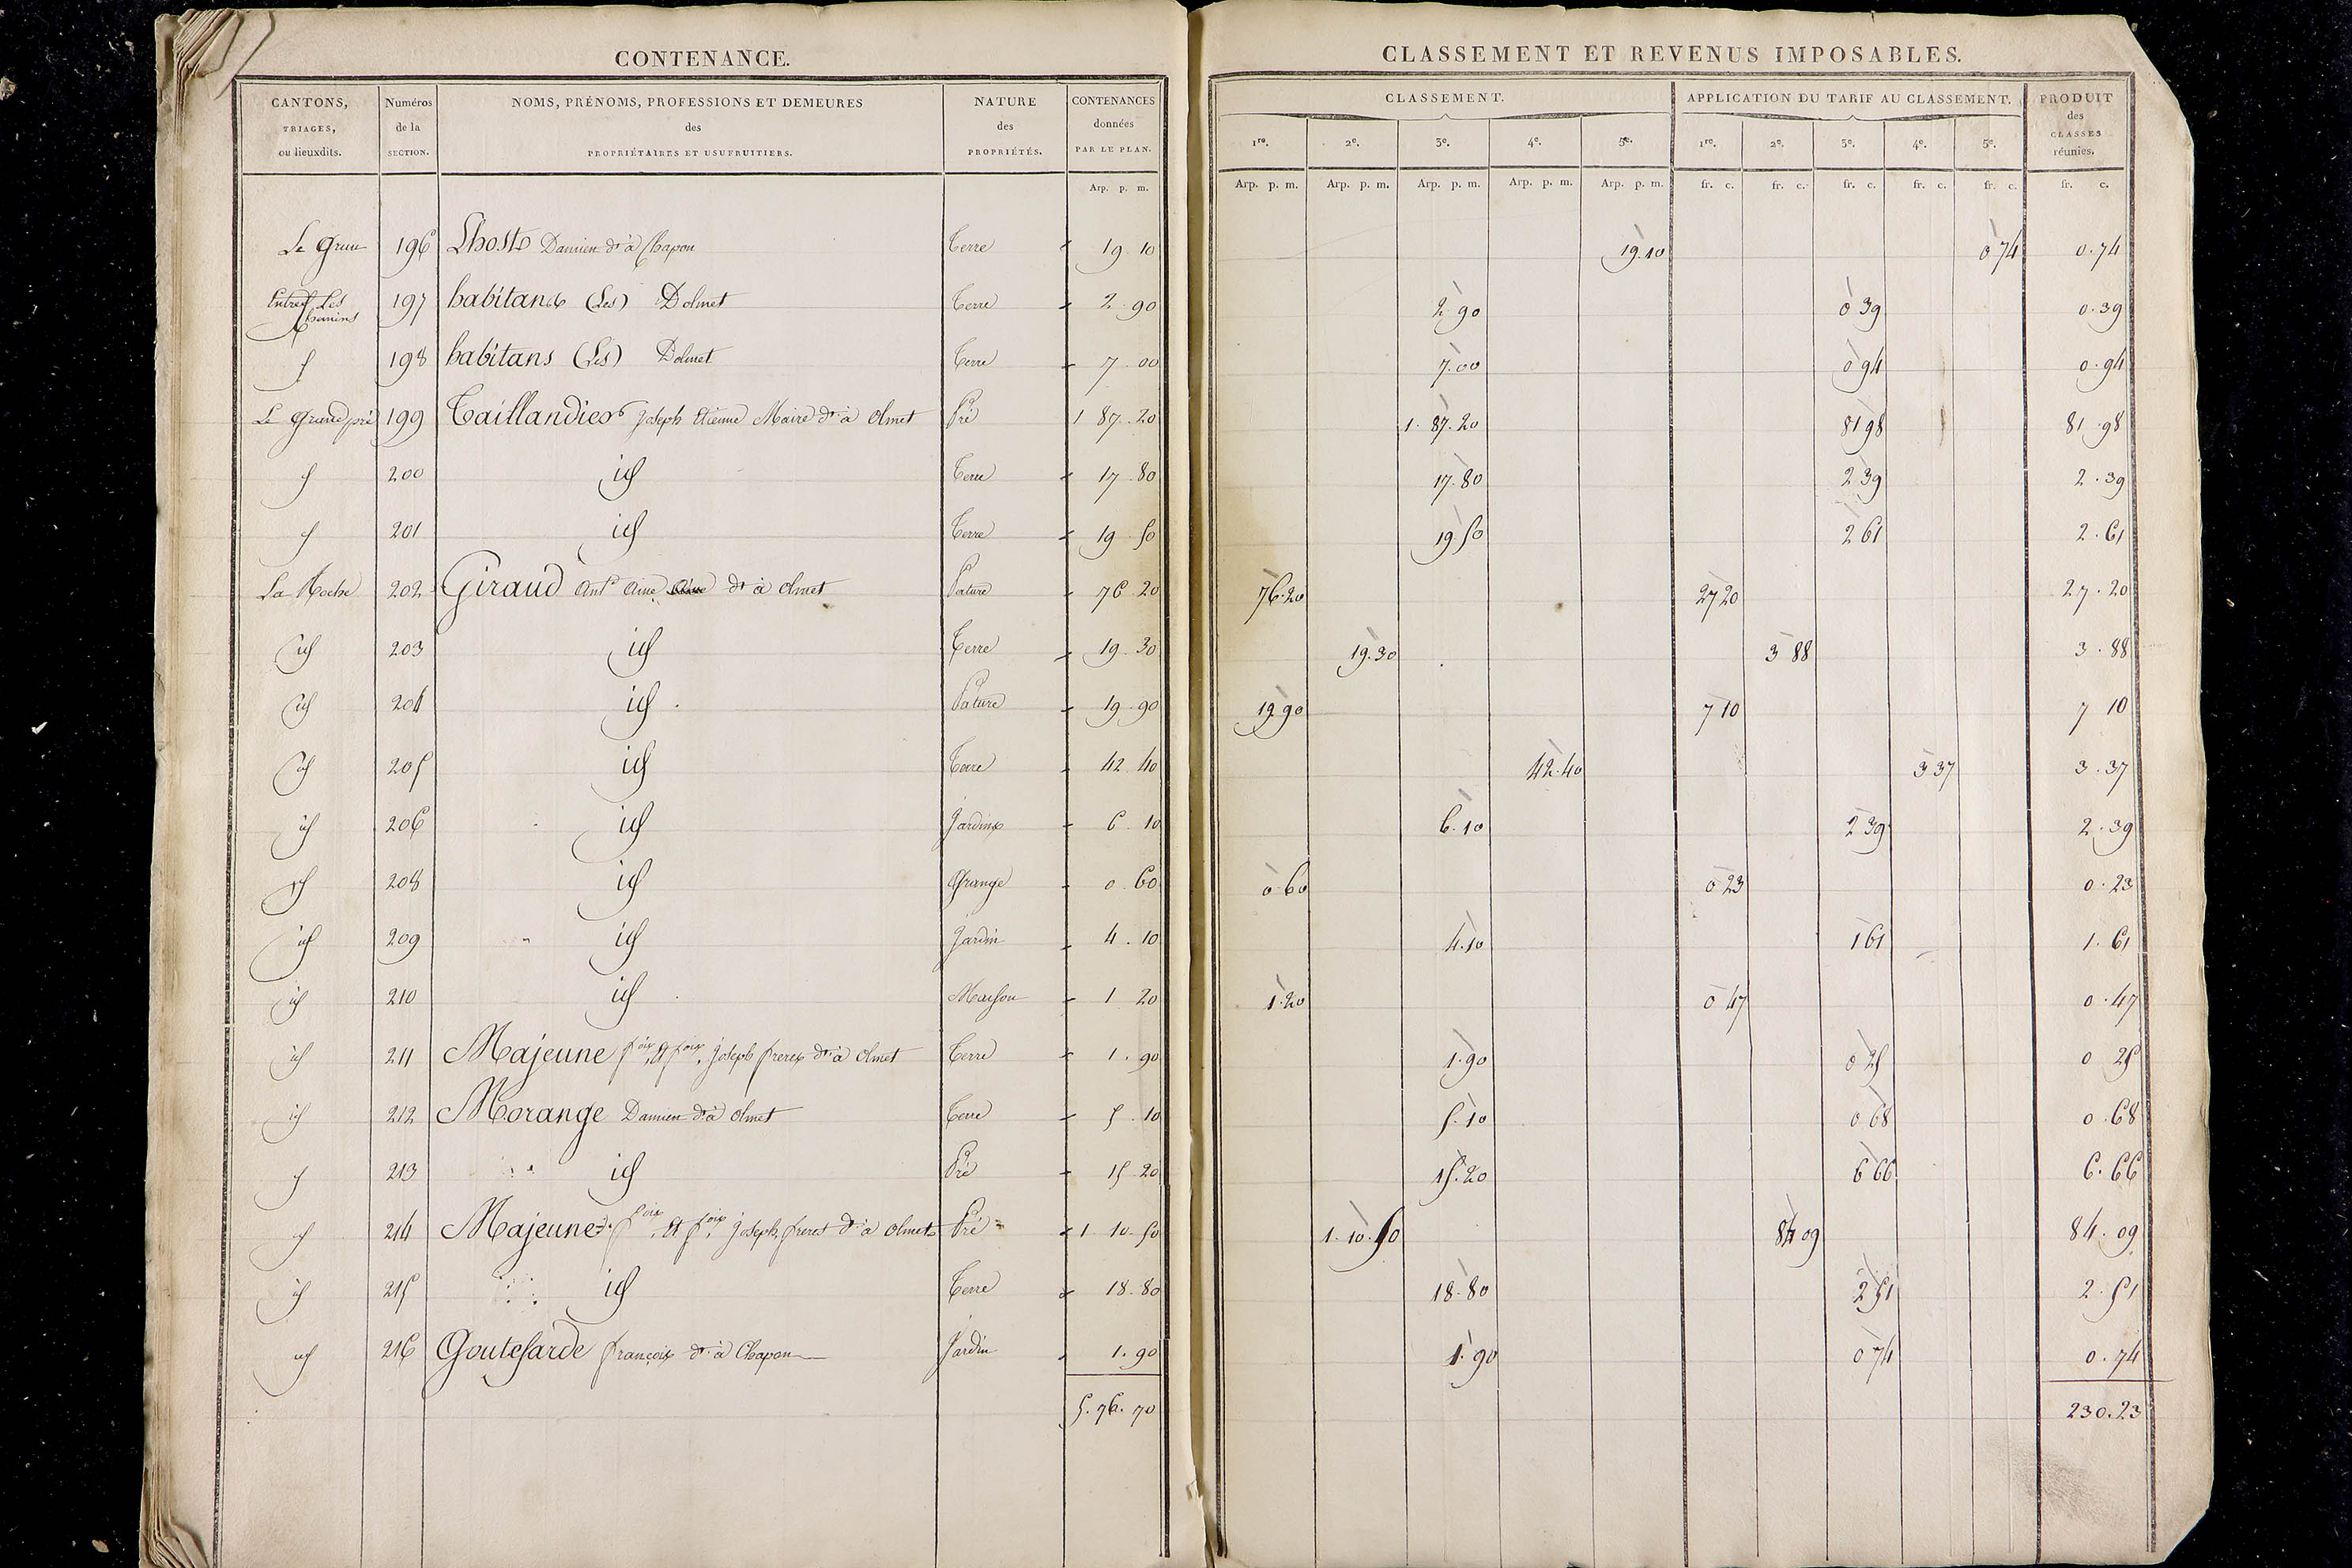 CONTENANCE.
CLASSEMENT ET REVENUS IMPOSABLES.
CANTONS, TRIAGES, ou lieuxdits. | Numéros de la SECTION. | NOMS, PRÉNOMS, PROFESSIONS ET DEMEURES des PROPRIÉTAIRES ET USUFRUITIERS. | NATURE des PROPRIÉTÉS. | CONTENANCES données PAR LE PLAN. | CLASSEMENT. | APPLICATION DU TARIF AU CLASSEMENT. | PRODUIT des CLASSES réunies.
1re. 2e. 3e. 4e. 5e. 1re. 2e. 3e. 4e. 5e.
Arp. p. m. Arp. p. m. Arp. p. m. Arp. p. m. Arp. p. m. Arp. p. m. fr. c. fr. c. fr. c. fr. c. fr. c. fr. c.
Le 196 Lhoste Damien dt à Chapon Terre 19 10 19.10 0 74 0.74
Entre Les Chemins 197 habitants (Les) Dolmet Terre 2 90 2 90 0 39 0.39
198 habitans (Les) Dolmet Terre 7 00 7.00 0 94 0.94
Le Grand pré 199 Taillandier Joseph Etienne Maire dt à Olmet Pré 1 87.20 1.87.20 81 98 81.98
200 id Terre 17.80 17.80 2 39 2.39
201 id Terre 19.50 19.50 2 61 2.61
La Roche 202 Giraud Ant Aine dt à Olmet Pature 76 20 76.20 27 20 27.20
id 203 id Terre 19.30 19.30 3 88 3.88
id 204 id Pature 19.90 19 90 7 10 7 10
id 205 id Terre 42.40 42.40 3 37 3.37
id 206 id Jardin 6 10 6.10 2 39 2.39
id 208 id Grange 0.60 0 60 0 23 0.23
id 209 id Jardin 4.10 4.10 1 61 1.61
id 210 id Maison 1 20 1.20 0 47 0.47
id 211 Majeune fois et fois Joseph freres dt à Olmet Terre 1.90 1.90 0 25 0 25
id 212 Morange Damien dt à Olmet Terre 5.10 5.10 0 68 0.68
id 213 id Pré 15.20 15.20 6 66 6.66
id 214 Majeune fois et fois Joseph freres dt à Olmet Pré 1 10.50 1.10.50 84 09 84.09
id 215 id Terre 18.80 18.80 2 51 2.51
id 216 Goutefarde françois dt à Chapon Jardin 1.90 1.90 0 74 0.74
5.76.70 230.23